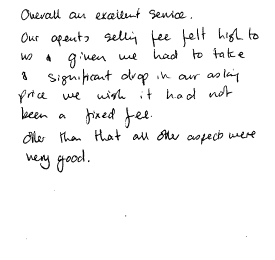 Overall an excellent service.
Our agents selling fee felt high to
us & given we had to take
a significant drop in our asking
price we wish it had not
been a fixed fee.
Other than that all other aspects were
very good.